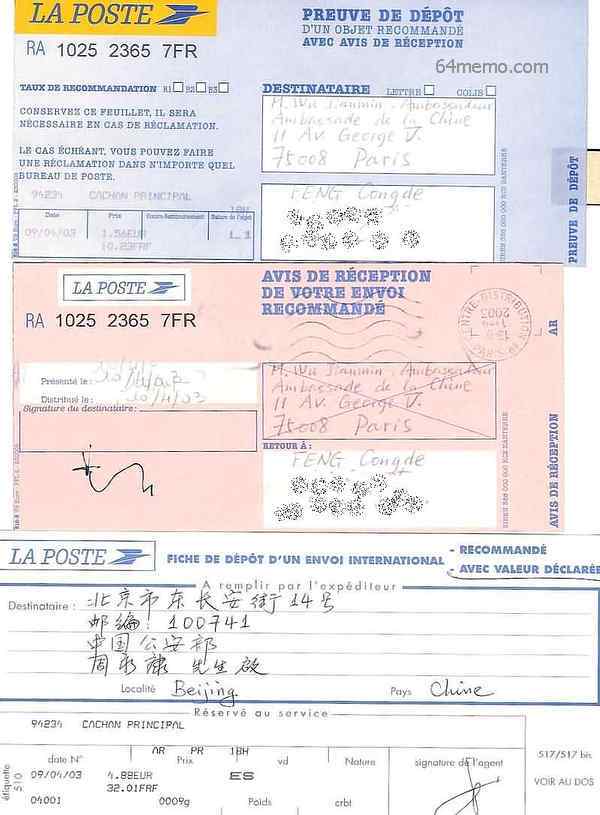 LA POSTE
PREUVE DE DÉPÔT
D'UN OBJET RECOMMANDÉ
AVEC AVIS DE RÉCEPTION
RA 1025 2365 7FR
64memo.com
TAUX DE RECOMMANDATION R1 R2 R3
DESTINATAIRE LETTRE COLIS
CONSERVEZ CE FEUILLET, IL SERA
NÉCESSAIRE EN CAS DE RÉCLAMATION.
LE CAS ÉCHÉANT, VOUS POUVEZ FAIRE
UNE RÉCLAMATION DANS N'IMPORTE QUEL
BUREAU DE POSTE.
M. Wu Jianmin, Ambassadeur
Ambassade de la Chine
11 Av. George V.
75008 Paris
FENG Congde
94234 CACHAN PRINCIPAL
1BH
Date Prix Contre-Remboursement Nature de l'objet
09/04/03 1.56EUR L1
10.23FRF
PREUVE DE DÉPÔT
LA POSTE
AVIS DE RÉCEPTION
DE VOTRE ENVOI
RECOMMANDÉ
RA 1025 2365 7FR
AR
Présenté le :
Distribué le : 10/4/03
Signature du destinataire :
M. Wu Jianmin, Ambassadeur
Ambassade de la Chine
11 Av. George V.
75008 Paris
RETOUR À :
FENG Congde
AVIS DE RÉCEPTION
LA POSTE
FICHE DE DÉPÔT D'UN ENVOI INTERNATIONAL
- RECOMMANDÉ
- AVEC VALEUR DÉCLARÉE
A remplir par l'expéditeur
Destinataire : 北京市东长安街14号
邮编：100741
中国公安部
周永康 先生啟
Localité Beijing Pays Chine
Réservé au service
94234 CACHAN PRINCIPAL
AR PR 1BH
date N° Prix vd Nature signature de l'agent
09/04/03 4.88EUR ES
32.01FRF
04001 0009g Poids crbt
517/517 bis
VOIR AU DOS
étiquette
510